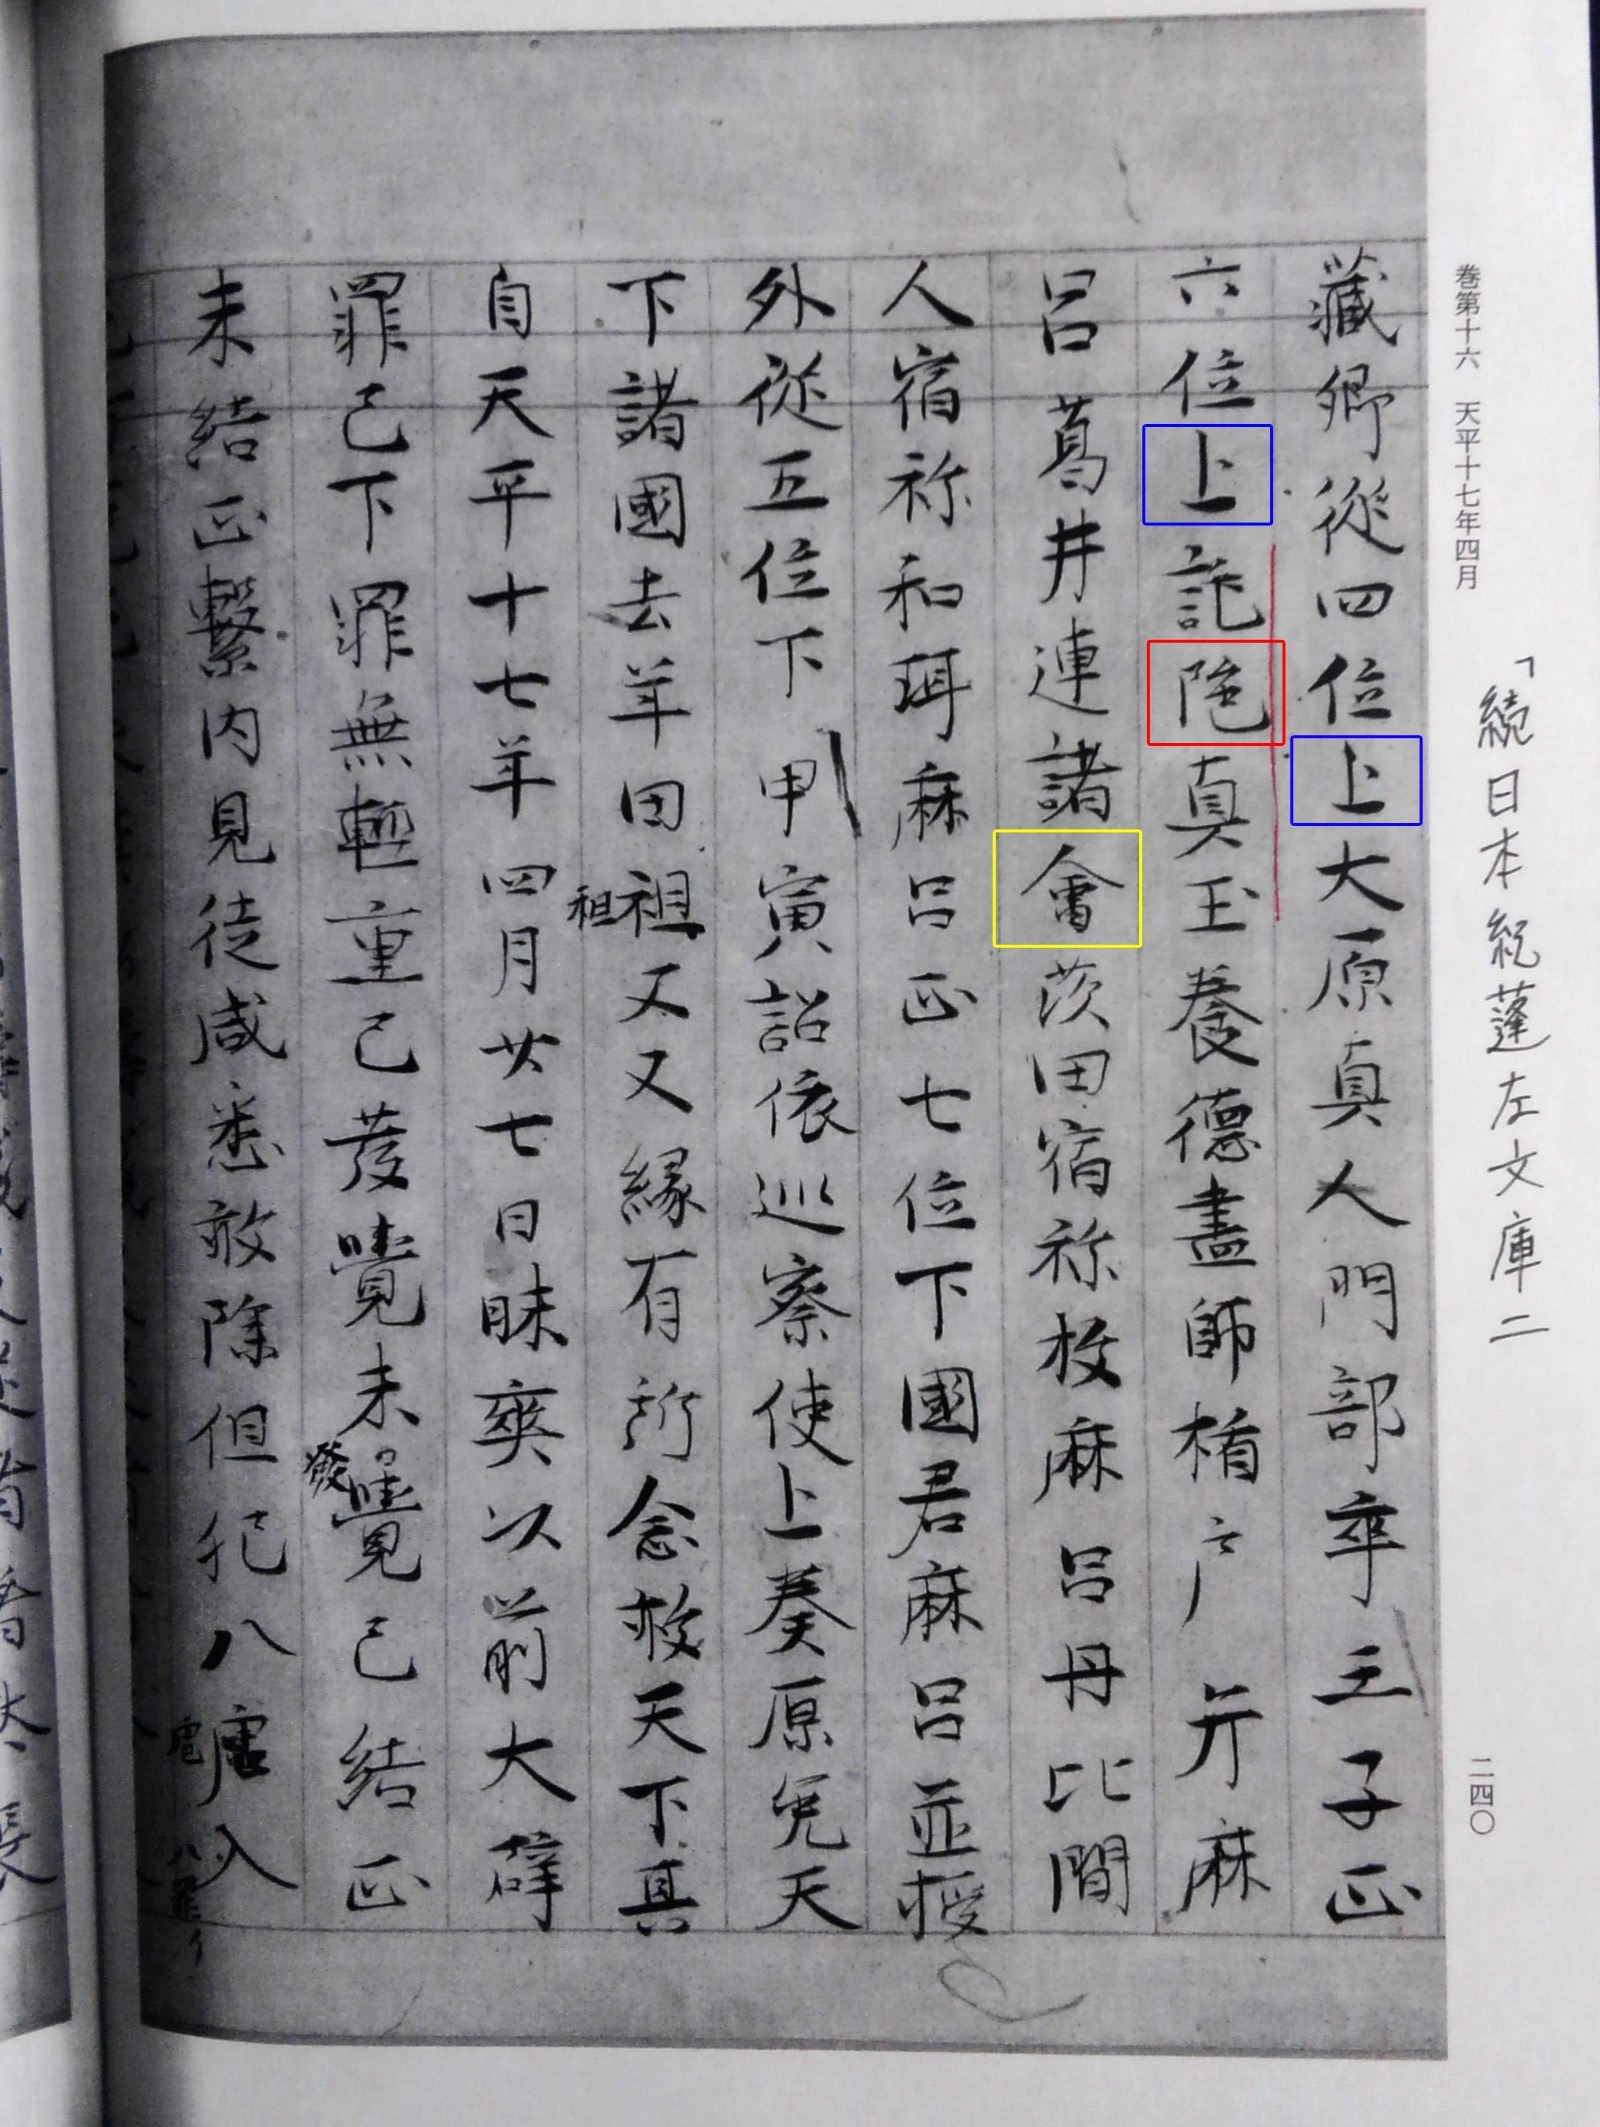 巻第十六　天平十七年四月
二四〇
「続日本紀蓬左文庫二
藏卿從四位上大原真人門部卒正
六位上託陁真玉養徳畫師楯戸弁麻
呂葛井連諸會茨田宿祢枚麻呂丹比間
人宿祢和珥麻呂正七位下國君麻呂並授
外從五位下甲寅詔依巡察使上奏原免天
下諸國去年田祖又又緣有所念赦天下其
租
自天平十七年四月廿七日昧爽以前大辟
罪已下罪無輕重已發覺未覺已結正
發
未結正繫内見徒咸悉赦除但犯八虐入